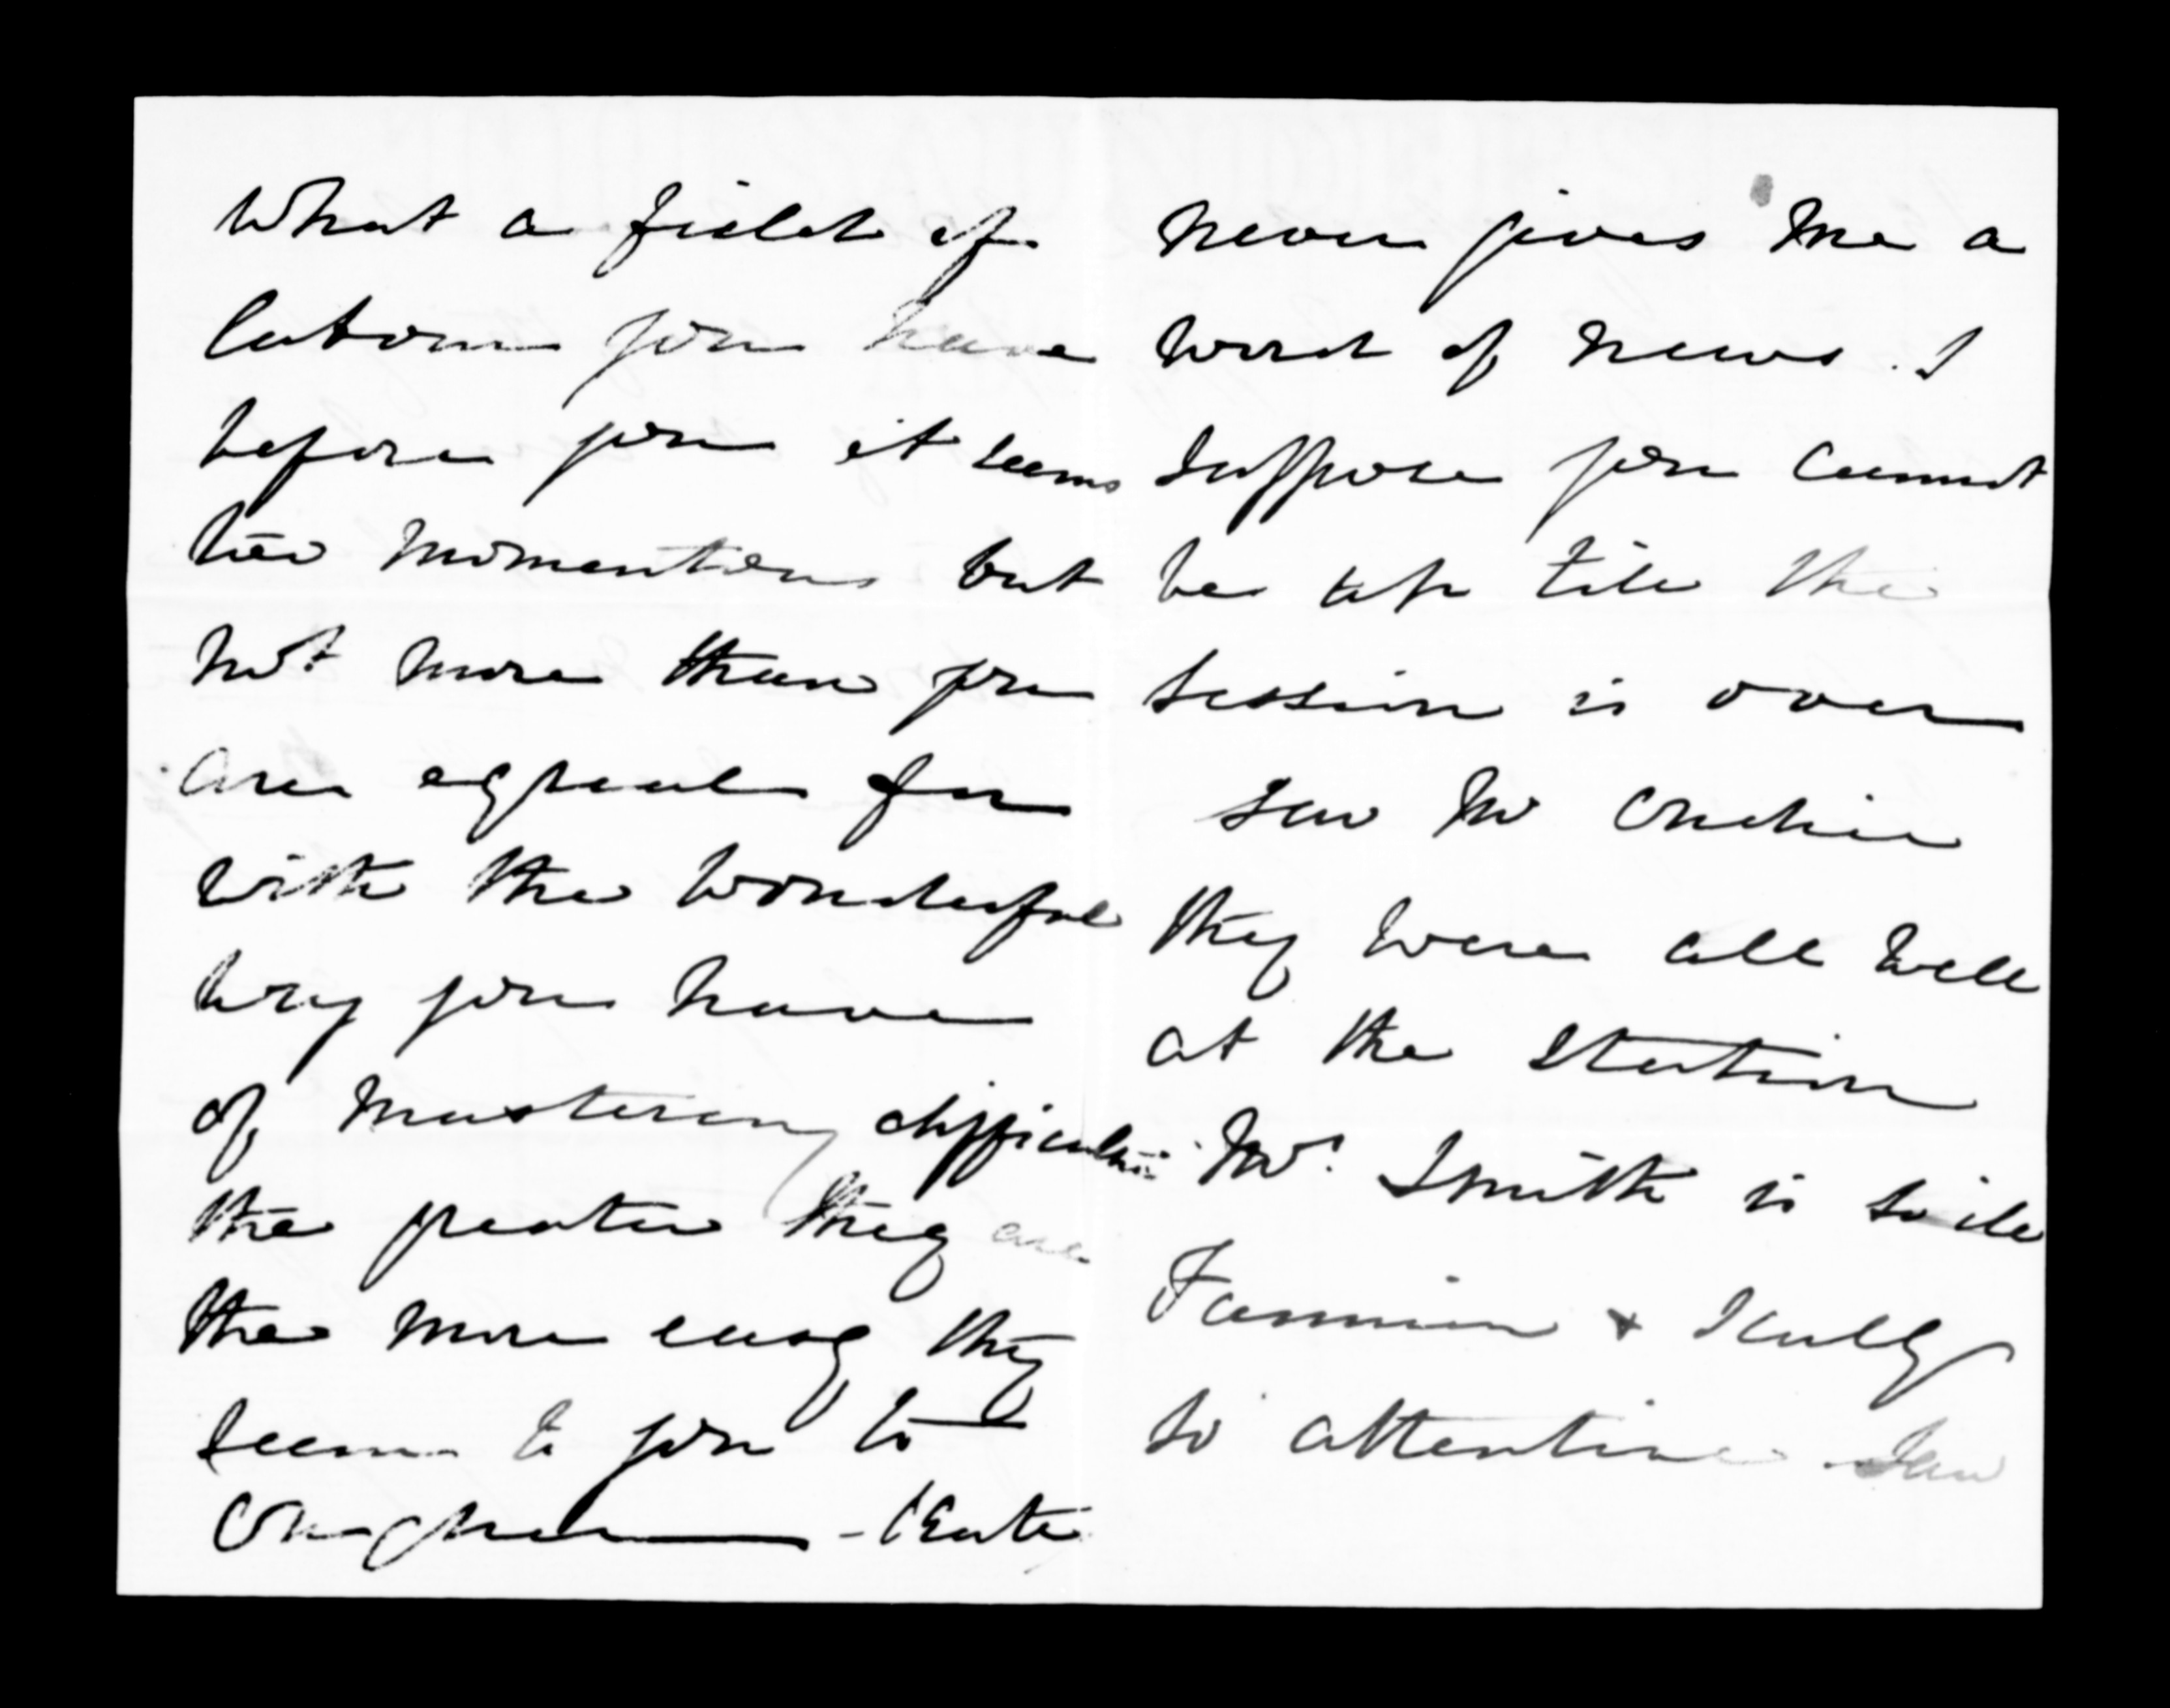 What a field of
labour you have
before you it seems
too momentous but
not more than you
are equal for
with the wonderful
way you have
of mastering difficulties
the greater they are
the more easy they
seem to you to
conquer - Kate
never gives me a
word of news. I
suppose you cannot
be up till the
session is over
saw Mr
they were all well
at the station
Mrs Smith is so ill
Fannin & Scully
so attentive saw